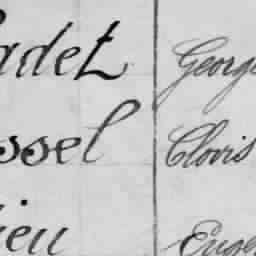 adet Georg
ssel Clovis
ieu Euge